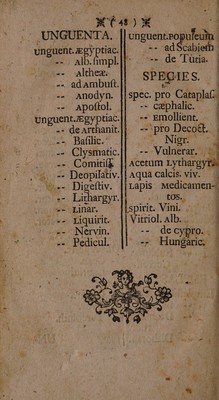 ( 48 )
UNGUENTA.
unguent.Ægyptiac.
-- Alb. simpl.
-- Altheæ.
-- ad Ambust.
-- Anodyn.
-- Apostol.
unguent.Ægyptiac.
-- de Arthanit.
-- Basilic.
-- Clysmatic.
-- Comitiss
-- Deopilativ.
-- Digestiv.
-- Lithargyr.
-- Linar.
-- Liquirit.
-- Nervin.
-- Pedicul.
unguent.Populeum
-- ad Scabiem
-- de Tutia.
SPECIES.
spec. pro Cataplas.
-- cæphalic.
-- Emollient.
-- pro Decoct.
Nigr.
-- Vulnerar.
Acetum Lythargyr.
Aqua calcis. viv.
Lapis Medicamen-
tos.
spirit. Vini.
Vitriol. Alb.
-- de cypro.
-- Hungaric.